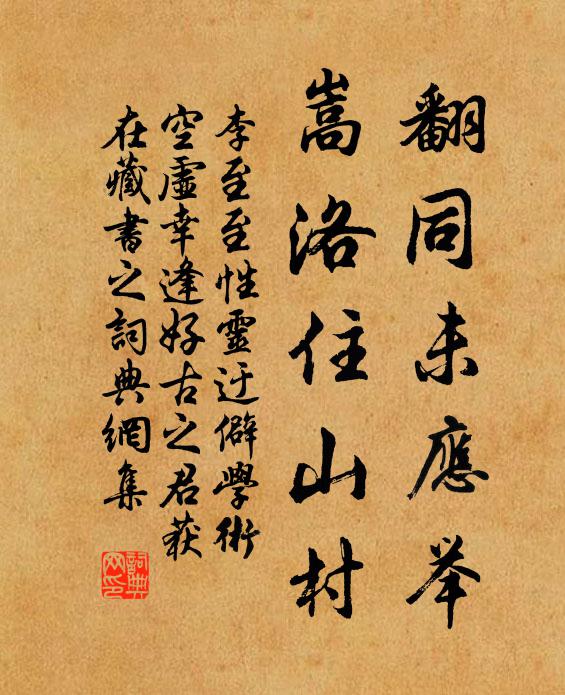 翻同未應举
嵩洛住山村
李至至性靈迂僻學術
空虛幸逢好古之君获
在藏書之詞典網集
詞典网印